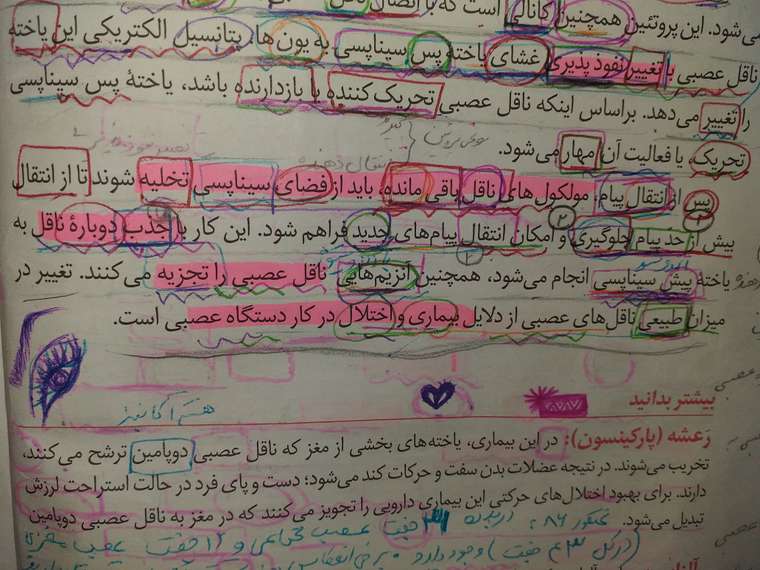 می‌شود. این پروتئین همچنین کانالی است که با اتصال
ناقل عصبی با تغییر نفوذپذیری غشای یاختهٔ پس سیناپسی به یون‌ها، پتانسیل الکتریکی این یاخته
را تغییر می‌دهد. براساس اینکه ناقل عصبی تحریک‌کننده یا بازدارنده باشد، یاختهٔ پس سیناپسی
تحریک، یا فعالیت آن مهار می‌شود.
پس از انتقال پیام، مولکول‌های ناقل باقی مانده، باید از فضای سیناپسی تخلیه شوند تا از انتقال
بیش از حد پیام جلوگیری و امکان انتقال پیام‌های جدید فراهم شود. این کار با جذب دوبارهٔ ناقل به
یاختهٔ پیش سیناپسی انجام می‌شود، همچنین آنزیم‌هایی ناقل عصبی را تجزیه می‌کنند. تغییر در
میزان طبیعی ناقل‌های عصبی از دلایل بیماری و اختلال در کار دستگاه عصبی است.
بیشتر بدانید
رَعشه (پارکینسون): در این بیماری، یاخته‌های بخشی از مغز که ناقل عصبی دوپامین ترشح می‌کنند،
تخریب می‌شوند. در نتیجه عضلات بدن سفت و حرکات کند می‌شود؛ دست و پای فرد در حالت استراحت لرزش
دارند. برای بهبود اختلال‌های حرکتی این بیماری دارویی را تجویز می‌کنند که در مغز به ناقل عصبی دوپامین
تبدیل می‌شود.